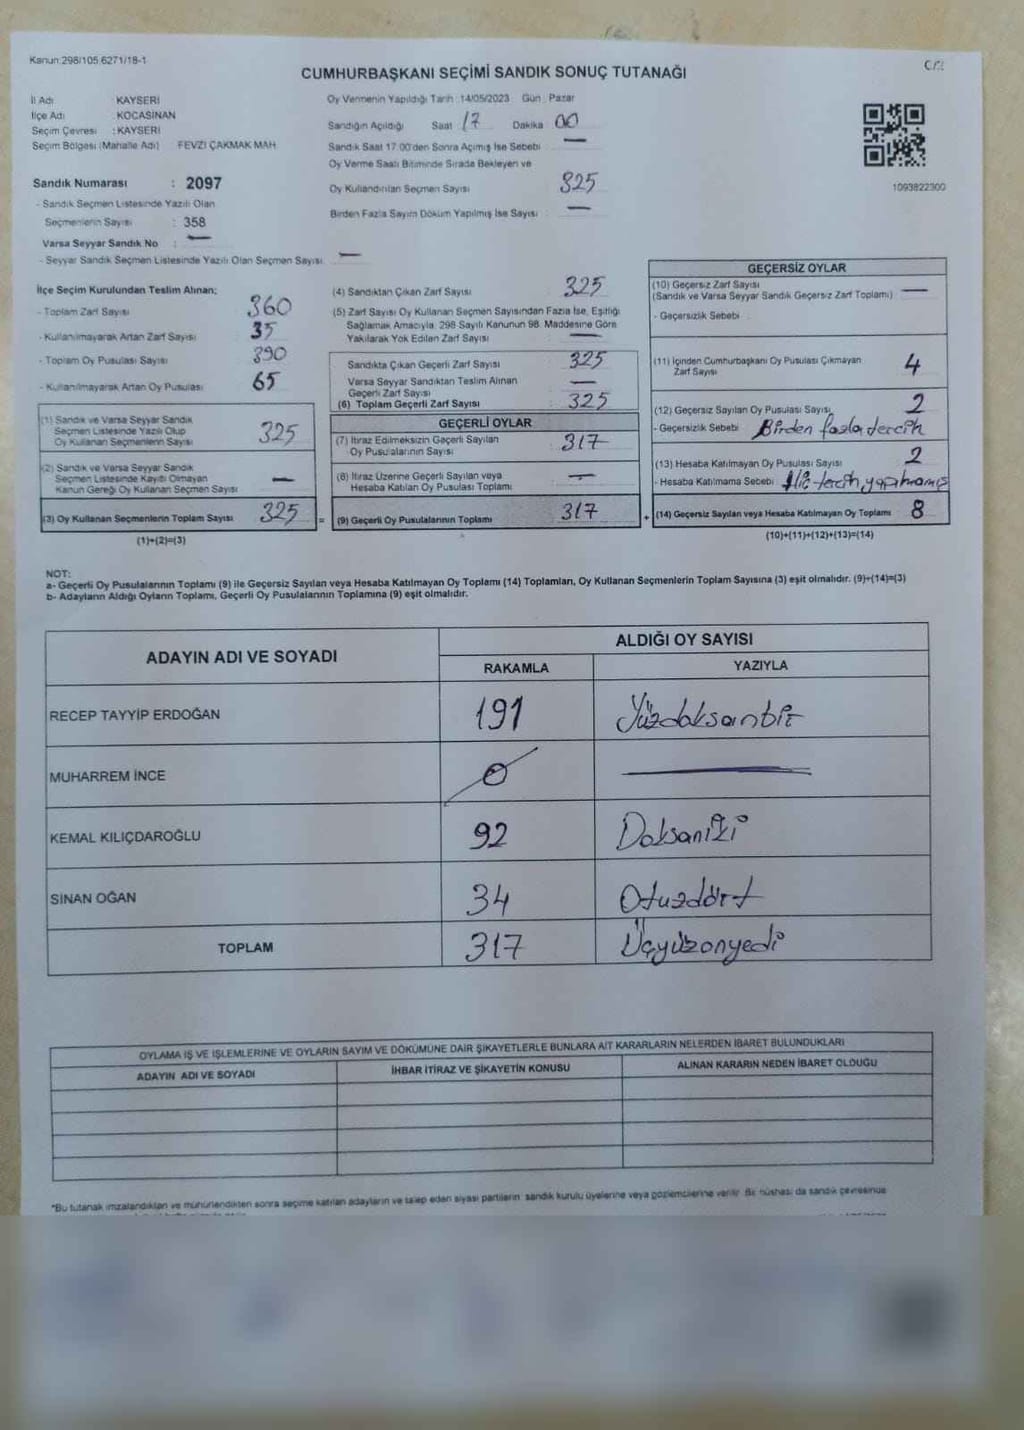 Kanun:298/105,6271/18-1
CUMHURBAŞKANI SEÇİMİ SANDIK SONUÇ TUTANAĞI
İl Adı : KAYSERİ
İlçe Adı : KOCASİNAN
Seçim Çevresi : KAYSERİ
Seçim Bölgesi (Mahalle Adı) FEVZİ ÇAKMAK MAH
Sandık Numarası : 2097
- Sandık Seçmen Listesinde Yazılı Olan
Seçmenlerin Sayısı : 358
Varsa Seyyar Sandık No : —
- Seyyar Sandık Seçmen Listesinde Yazılı Olan Seçmen Sayısı: —
Oy Vermenin Yapıldığı Tarih : 14/05/2023 Gün : Pazar
Sandığın Açıldığı Saat 17 Dakika 00
Sandık Saat 17.00'den Sonra Açımış İse Sebebi : —
Oy Verme Saati Bitiminde Sırada Bekleyen ve
Oy Kullandırılan Seçmen Sayısı : 325
Birden Fazla Sayım Döküm Yapılmış İse Sayısı : —
1093822300
İlçe Seçim Kurulundan Teslim Alınan;
- Toplam Zarf Sayısı : 360
- Kullanılmayarak Artan Zarf Sayısı : 35
- Toplam Oy Pusulası Sayısı : 390
- Kullanılmayarak Artan Oy Pusulası : 65
(1) Sandık ve Varsa Seyyar Sandık
Seçmen Listesinde Yazılı Olup
Oy Kullanan Seçmenlerin Sayısı : 325
(2) Sandık ve Varsa Seyyar Sandık
Seçmen Listesinde Kaydı Olmayan
Kanun Gereği Oy Kullanan Seçmen Sayısı : —
(3) Oy Kullanan Seçmenlerin Toplam Sayısı : 325 =
(1)+(2)=(3)
(4) Sandıktan Çıkan Zarf Sayısı : 325
(5) Zarf Sayısı Oy Kullanan Seçmen Sayısından Fazla İse, Eşitliği
Sağlamak Amacıyla, 298 Sayılı Kanunun 98. Maddesine Göre
Yakılarak Yok Edilen Zarf Sayısı : —
Sandıkta Çıkan Geçerli Zarf Sayısı : 325
Varsa Seyyar Sandıktan Teslim Alınan
Geçerli Zarf Sayısı : —
(6) Toplam Geçerli Zarf Sayısı : 325
GEÇERLİ OYLAR
(7) İtiraz Edilmeksizin Geçerli Sayılan
Oy Pusulalarının Sayısı : 317
(8) İtiraz Üzerine Geçerli Sayılan veya
Hesaba Katılan Oy Pusulası Toplamı : —
(9) Geçerli Oy Pusulalarının Toplamı : 317 +
GEÇERSİZ OYLAR
(10) Geçersiz Zarf Sayısı : —
(Sandık ve Varsa Seyyar Sandık Geçersiz Zarf Toplamı)
- Geçersizlik Sebebi :
(11) İçinden Cumhurbaşkanı Oy Pusulası Çıkmayan
Zarf Sayısı : 4
(12) Geçersiz Sayılan Oy Pusulası Sayısı : 2
- Geçersizlik Sebebi : Birden fazla tercih
(13) Hesaba Katılmayan Oy Pusulası Sayısı : 2
- Hesaba Katılmama Sebebi : Hiç tercih yapılmamış
(14) Geçersiz Sayılan veya Hesaba Katılmayan Oy Toplamı : 8
(10)+(11)+(12)+(13)=(14)
NOT:
a- Geçerli Oy Pusulalarının Toplamı (9) ile Geçersiz Sayılan veya Hesaba Katılmayan Oy Toplamı (14) Toplamları, Oy Kullanan Seçmenlerin Toplam Sayısına (3) eşit olmalıdır. (9)+(14)=(3)
b- Adayların Aldığı Oyların Toplamı, Geçerli Oy Pusulalarının Toplamına (9) eşit olmalıdır.
ADAYIN ADI VE SOYADI
ALDIĞI OY SAYISI
RAKAMLA YAZIYLA
RECEP TAYYİP ERDOĞAN 191 Yüzdoksanbir
MUHARREM İNCE 0 —
KEMAL KILIÇDAROĞLU 92 Doksaniki
SİNAN OĞAN 34 Otuzdört
TOPLAM 317 Üçyüzonyedi
OYLAMA İŞ VE İŞLEMLERİNE VE OYLARIN SAYIM VE DÖKÜMÜNE DAİR ŞİKAYETLERLE BUNLARA AİT KARARLARIN NELERDEN İBARET BULUNDUKLARI
ADAYIN ADI VE SOYADI İHBAR İTİRAZ VE ŞİKAYETİN KONUSU ALINAN KARARIN NEDEN İBARET OLDUĞU
*Bu tutanak imzalandıktan ve mühürlendikten sonra seçime katılan adayların ve talep eden siyasi partilerin sandık kurulu üyelerine veya gözlemcilerine verilir. Bir nüshası da sandık çevresinde